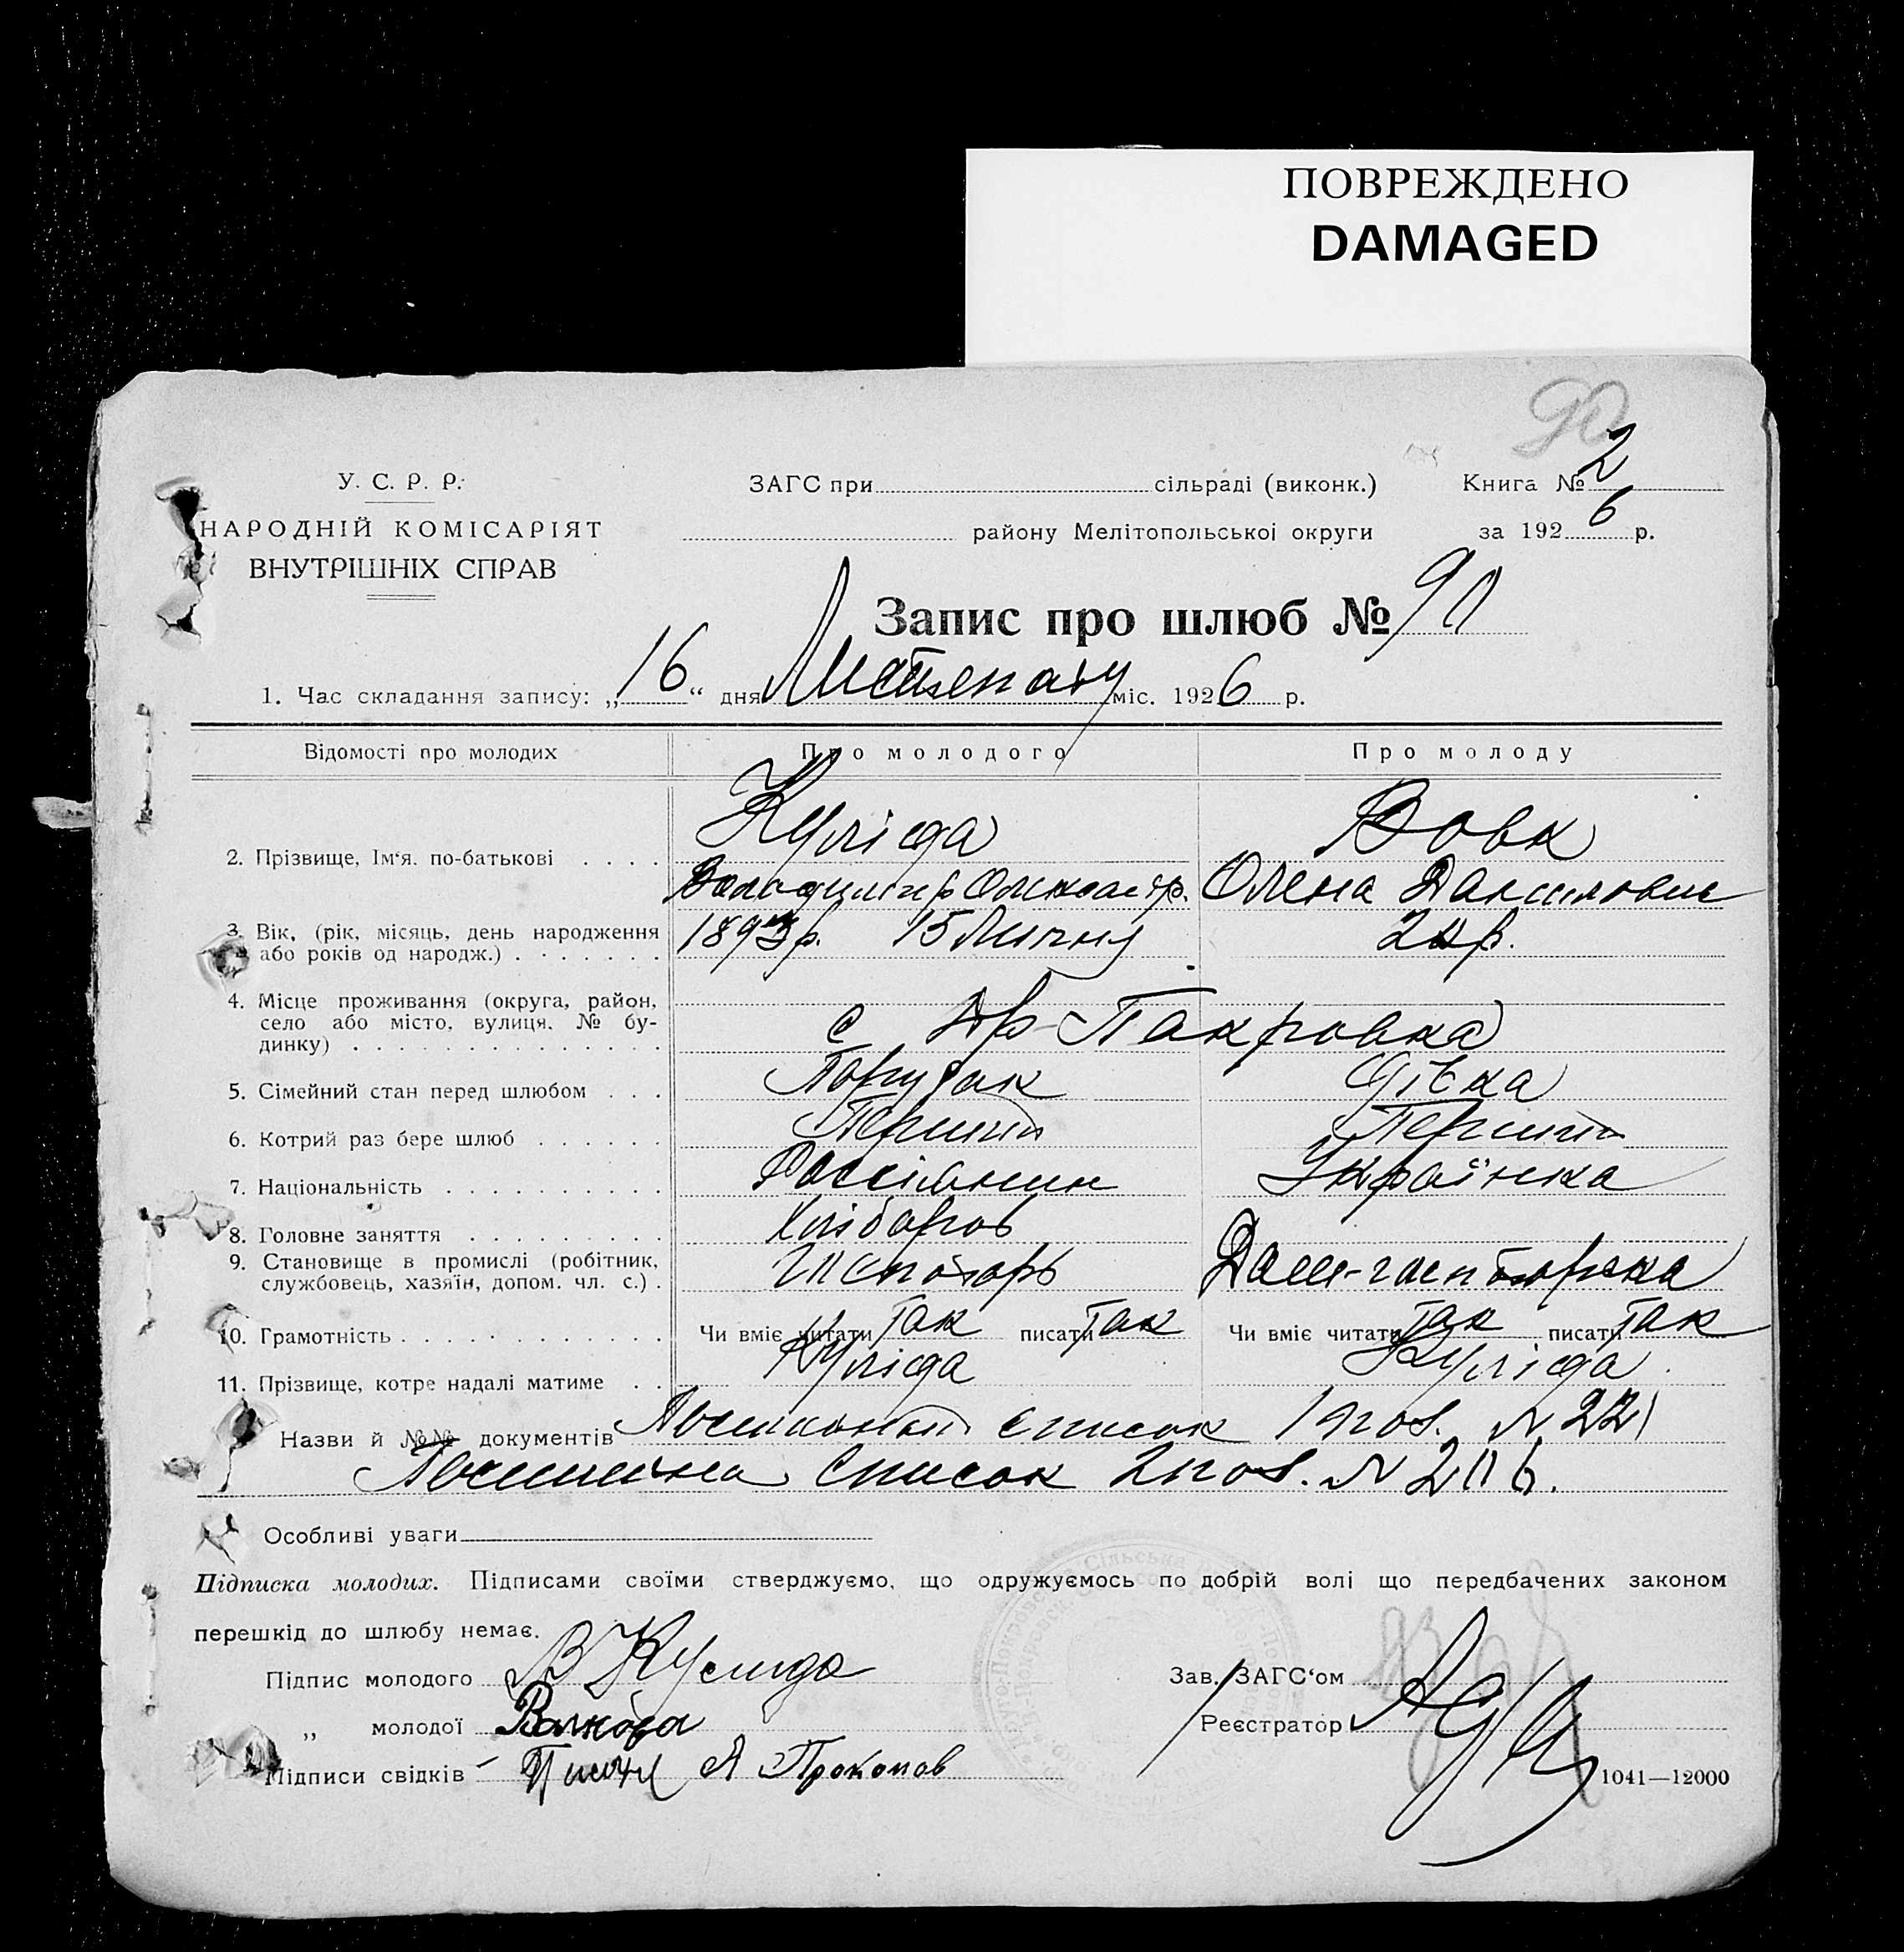 ПОВРЕЖДЕНО
DAMAGED
90
У. С. Р. Р.
НАРОДНІЙ КОМІСАРІЯТ
ВНУТРІШНІХ СПРАВ
ЗАГС при сільраді (виконк.)
району Мелітопольської округи
Книга № 2
за 1926 р.
Запис про шлюб № 90
1. Час складання запису: „16“ дня Листопаду міс. 1926 р.
Відомості про молодих Про молодого Про молоду
2. Прізвище, Ім‘я, по-батькові Куліда Вовк
Володимир Олександр. Олена Даниловна
3. Вік, (рік, місяць, день народження 1893 р. 15 Липню
або років од народж.)
4. Місце проживання (округа, район,
село або місто, вулиця, № бу-
динку) с Покровка
5. Сімейний стан перед шлюбом Парубок Дівка
6. Котрий раз бере шлюб Перший Перший
7. Національність Россіянин Українка
8. Головне заняття Хлібороб
9. Становище в промислі (робітник,
службовець, хазяїн, допом. чл. с.)
10. Грамотність Чи вміє читати так писати так Чи вміє читати так писати так
11. Прізвище, котре надалі матиме Куліда Куліда
Назви й №№ документів список 1 пос. N 221
список 2 пос. N
Особливі уваги
Підписка молодих. Підписами своїми стверджуємо, що одружуємось по добрій волі що передбачених законом
перешкід до шлюбу немає.
Підпис молодого В Кулида
„ молодої
Підписи свідків А Прокопов
Зав. ЗАГС‘ом
Реєстратор
1041—12000